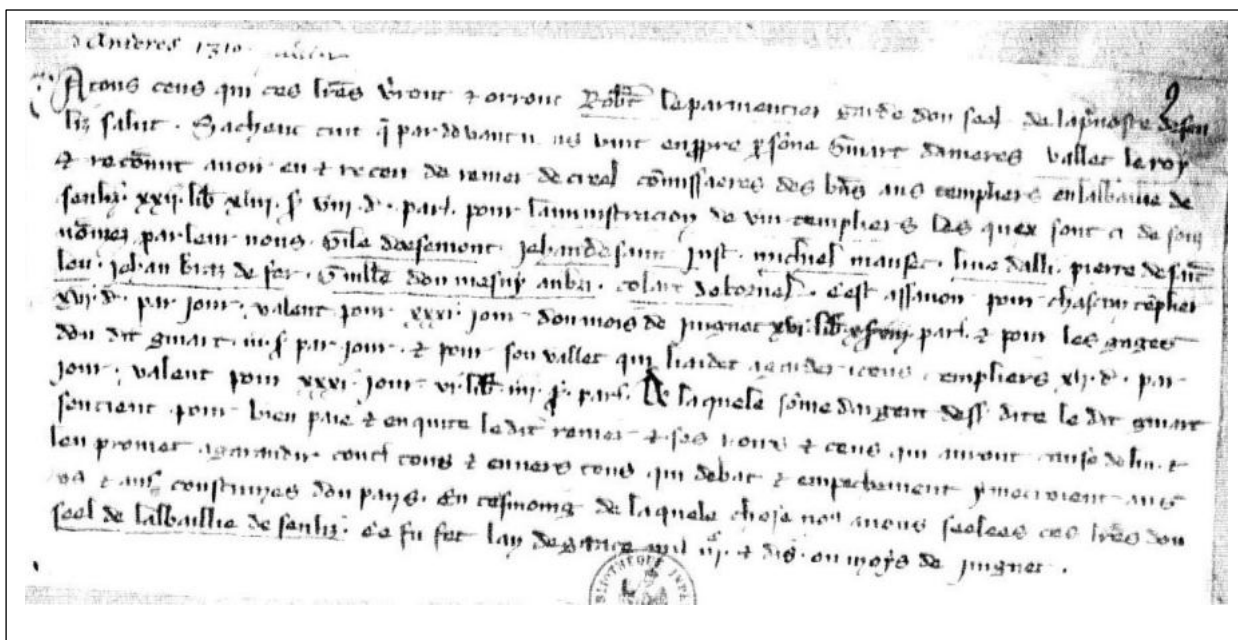 Anieres 1310
A tous ceus qui ces lrēs vrront & orront Robt̄ le parmentier garde dou seel de la pvoste de sen
liz salut . Sachent tuit q̄ par devant n us vint en ppre psōne Guiart danieres vallet le roy
& recōnut avoir eu & receu de renier de creel cōmissaeres des bn̄s aus templiers en la balie de
senliz . xxii . lib xliiii . s̄ viii . d . par . pour laministracion de viii templiers Les quex sont ci de souz
nōmez par leur nous . Guille de cesemont . Jehan de saint Just . michiel manset . live dalli . pierre de sait
leu . Jehan braz de fer . Guille dou mesnil aubri . colart de bornel . cest assavoir pour chascun tēplier
xvi . d . par jour . valent pour xxxi . jour dou mois de juignet xvi . lib . x s viii par . & pour les gages
dou dit guiart . iii . s̄ par jour . & pour son vallet qui li aidet a garder iceus templiers xii . d . par
jour . valent pour xxxi . jour vi . lib . iiii . s̄ . par . A laquele sōme dargent dess dite le dit guiart
sentient pour bien paie & en quite le dit renier & ses hours & ceus qui auront cause de lui . &
leu promet a garandir contr tous & envers tous . qui debat & empechement y metroient aus
us & aus coustumes dou pays . En tesmoing de laquele chose noꝰ avons seelees ces lrēs dou
seel de la baillie de senliz . ce fu fet lan de grace mil iiiᶜ . & dis . ou moys de juignet .
BIBLIOTHEQUE IMPE